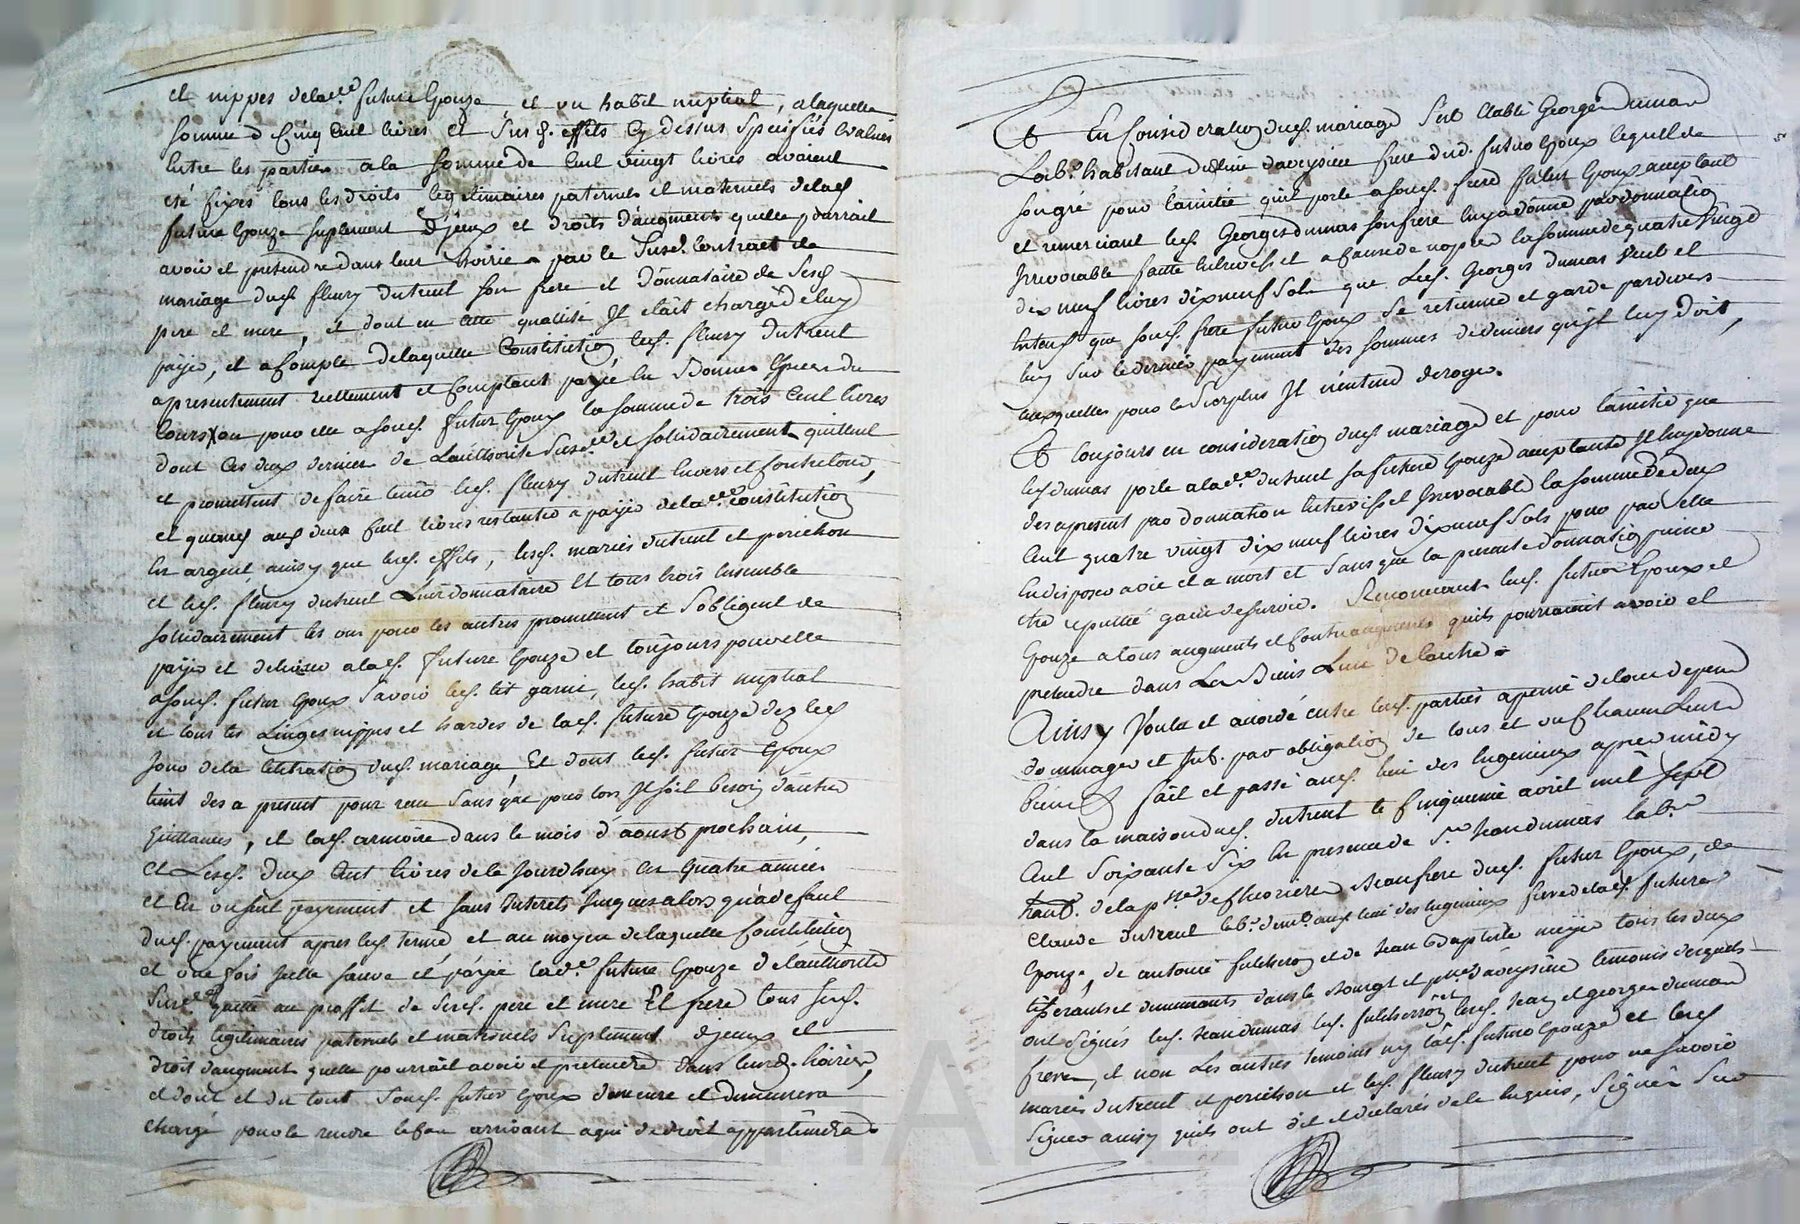 et nippes de lad.e future Epouze et un habit nuptial, a laquelle
somme de Cinq Cent livres et susd. effets Cy dessus Specifiés Evalués
Entre les parties a la somme de Cent vingt livres avoient
eté fixés tous les droits legitimaires paternels et maternels de lad.
future Epouze suplement d'jceux et droits d'augment quelle pourrait
avoir et pretendre dans leur hoirie par le Susd. Contract de
mariage dud. fleury dutreul son frere et Donnataire de Sesd.
pere et mere, et dont en cette qualité Jl etait chargé de luy
payer, et a Compte de laquelle Constitution, led. fleury dutreul
a presentement reellement et Comptant payé En Bonnes Especes du
Cours X ou pour elle a soud. futur Epoux la somme de trois Cent livres
dont Ces deux dernier de L'authorité Susd.e et solidairement quittent
et promettent de faire tenir led. fleury dutreul Envers et Contre tous,
et quand aux deux Cent livres restantes a payer de lad.e constitution
En argent, ainsy que lesd. effets, lesd. mariés dutreul et perichon
et led. fleury dutreul Leur donnataire Et tous trois Ensemble
solidairement les uns pour les autres promettent et S'obligent de
payer et delivrer a lad. future Epouze et toujours pour elle
a soud. futur Epoux Savoir led. lit garni, led. habit nuptial
et tous les Linges nippes et hardes de lad. future Epouze dez le
Jour de la Celebration dud. mariage, Et dont led. futur Epoux
tient des a present pour reçu Sans que pour lors Jl soit besoin d'autre
quittance, et lad. armoire dans le mois d'aoust prochain,
et Lesd. Deux Cent livres de ce Jourdhuy en quatre années
et En un seul payement et sans Interets Jusques alors qu'a defaut
dud. payement apres led. terme, et au moyen de laquelle Constitution
et une fois Jcelle sauve et payée lad.e future Epouze de l'authorité
Susd.e quitte au proffit de Sesd. pere et mere Et frere tous sesd.
droits legitimaires paternels et maternels Suplement d'jceux et
droit d'augment quelle pourrait avoir et pretendre dans leurd. hoiries,
et dont et du tout Soud. futur Epoux demeure et demeurera
chargé pour le rendre le Cas arrivant a qui de droit appartiendra.
Et En Consideration dud. mariage S'est etabli George Dumas
Lab.r habitant de d'aveysieu frere dud. futur Epoux lequel de
son gré pour l'amitié qu'il porte a soud. frere futur Epoux acceptant
et remerciant led. Georges dumas son frere luy a donné par donnation
Jrrevocable faite Entrevifs et a Cause de nopces la somme de quatre Vingt
dix neuf livres dixneuf Sols que led. Georges dumas veut et
Entend que soud. frere futur Epoux Se retienne et garde par devers
luy Sur le dernier payement des sommes de deniers qu'jl luy doit,
auxquelles pour le Surplus Jl n'entend deroger.
Et toujours en consideration dud. mariage et pour l'amitié que
led. dumas porte a lad.e dutreul sa future Epouze acceptante Jl luy donne
des a present par donnation Entrevifs et Jrrevocable la somme de deux
Cent quatre vingt dix neuf livres dixneuf Sols pour par elle
En disposer a vie et a mort et Sans que la presente donnation puisse
etre reputée gain de survie. Renonceant led. futur Epoux et
Epouze a tous augments et Contraugments qu'ils pourraient avoir et
pretendre dans Les Biens L'un de l'autre.
Ainsy Voulu et acordé entre lesd. parties a peine de tous depens
dommages et Jnt. par obligation de tous et un Chacun Leurs
biens. fait et passé aud. lieu des Ingenieux apres midy
dans la maison dud. dutreul le Cinquieme avril mil Sept
Cent Soixante Six En presence de S.r Jean dumas lab.r
habt. de la p.sse de Beaufrere dud. futur Epoux, de
Claude dutreul lab.r dem.t aud. lieu des Ingenieux frere de lad. future
Epouze, de antoine fulcheron et de Jean Baptiste meyer tous les deux
tisserants et demeurants dans le Bourgt et p.sse d'aveysieu temoins desquels
ont Signés led. Jean dumas led. fulcheron led. Jean et George dumas
freres, et non Les autres temoins ny lad. future Epouze et lesd.
mariés dutreul et perichon et led. fleury dutreul pour ne savoir
Signer ainsy qu'ils ont dit et declarés de ce Enquis, Signés Sur